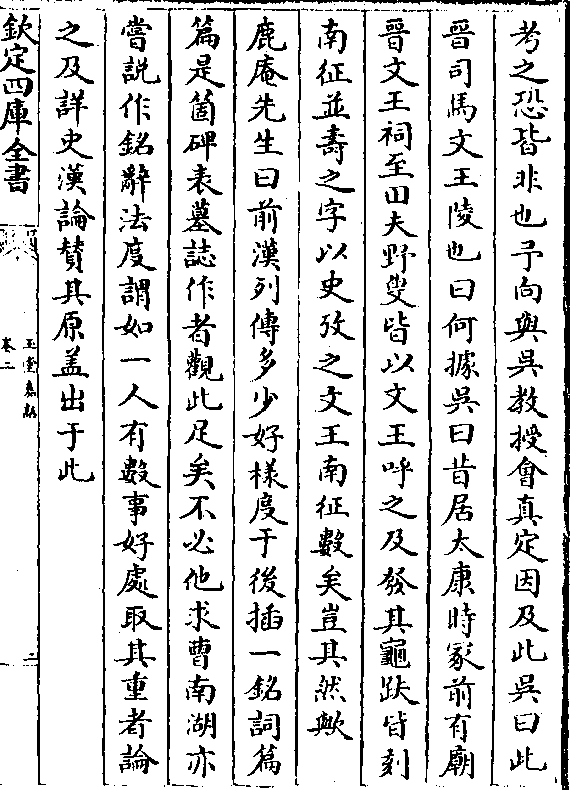 考之恐皆非也予向與吳教授會真定因及此吳曰此
晉司馬文王陵也曰何據吳曰昔居太康時冢前有廟
晉文王祠至田夫野叟皆以文王呼之及發其龜趺皆刻
南征並壽之字以史攷之文王南征數矣豈其然歟
鹿庵先生曰前漢列傳多少好様度于後插一銘詞篇
篇是箇碑表墓誌作者觀此足矣不必他求曹南湖亦
嘗説作銘辭法度謂如一人有數事好處取其重者論
之及詳史漢論賛其原盖出于此
欽定四庫全書
玉堂嘉話
卷二
二